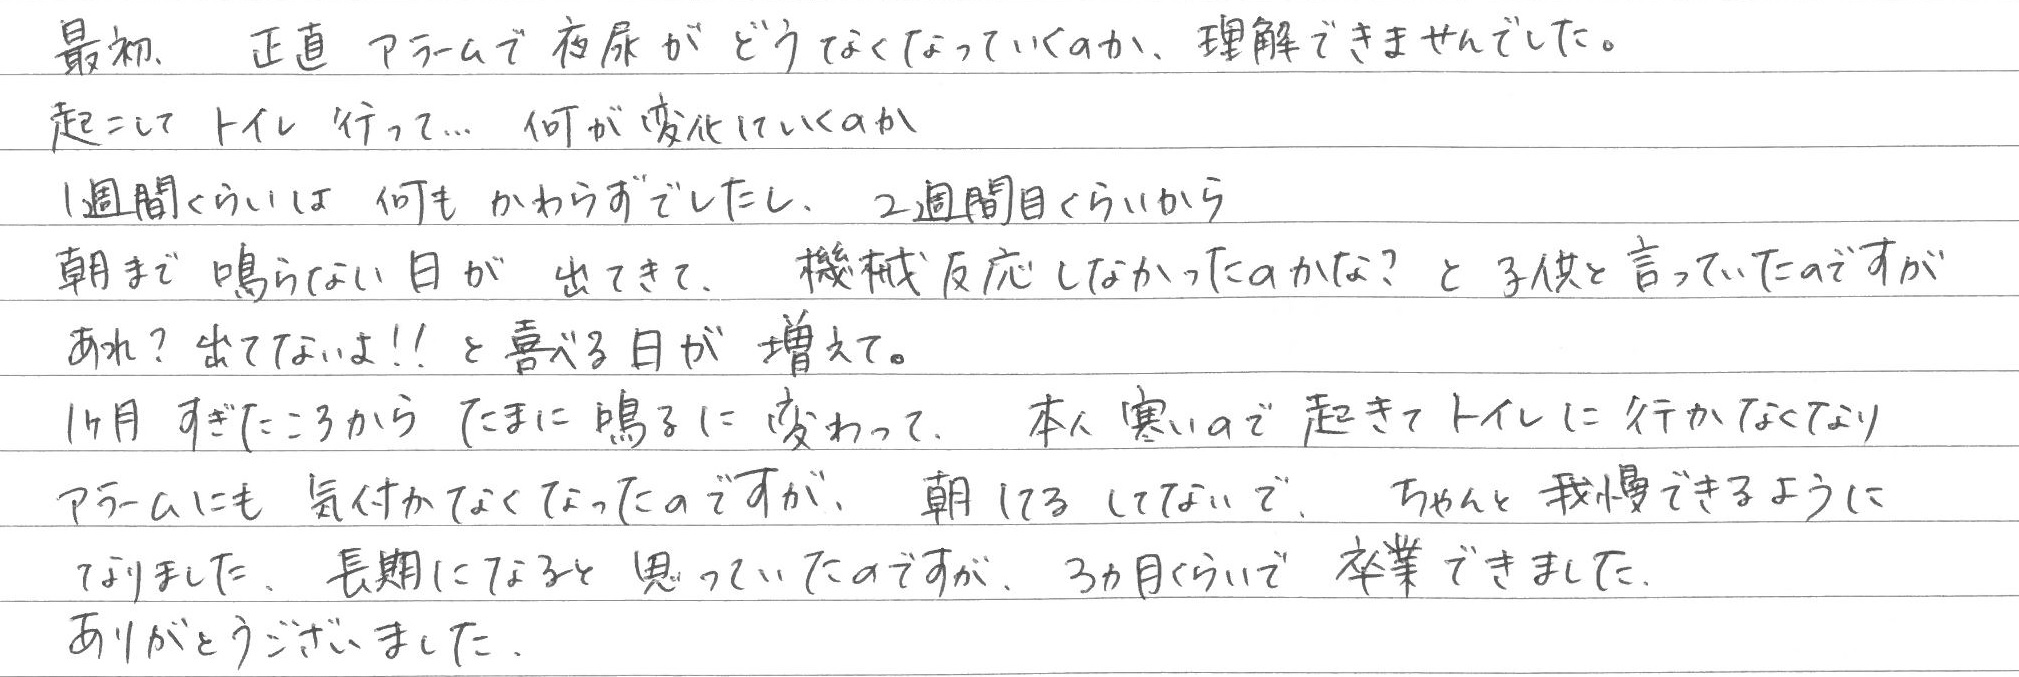 最初、 正直 アラームで夜尿がどうなくなっていくのか、理解できませんでした。
起こして トイレ 行って… 何が変化していくのか
1週間くらいは 何も かわらずでしたし、 2週間目くらいから
朝まで 鳴らない日が 出てきて、 機械反応しなかったのかな？と 子供と言っていたのですが
あれ？出てないよ！！と喜べる日が 増えて。
1ヶ月 すぎたころから たまに 鳴るに 変わって、 本人 寒いので 起きてトイレに 行かなくなり
アラームにも 気付かなくなったのですが、 朝 してる してないで、 ちゃんと 我慢できるように
なりました、 長期になると 思っていたのですが、 3カ月くらいで 卒業できました、
ありがとうございました、